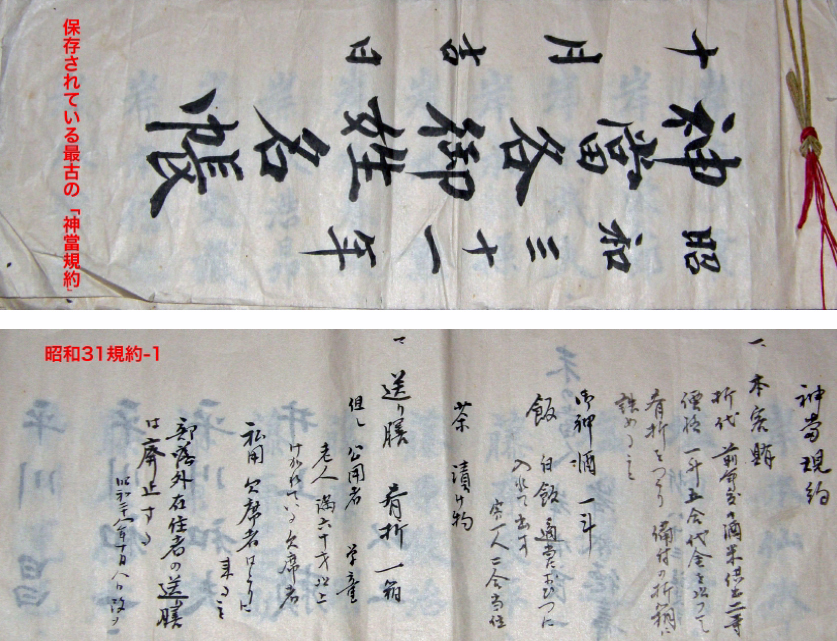 十月吉日
神當各御姓名帳
昭和三十一年
保存されている最古の「神當規約」
昭和31規約-1
神當規約
一、本客賄
折代 前年度の酒米供出二等
価格一斗五合代金を以つて
肴折をつくり備付の折箱に
詰めること
御神酒 一斗
飯 白飯 適当におひつに
入れて出す
客一人二合当位
茶 漬け物
一、送り膳 肴折一箱
但し 公用者 学童
老人 満六十才以上
けがれている欠席者
私用欠席者はとりに
来ること
部落外在住者の送り膳
は廃止する